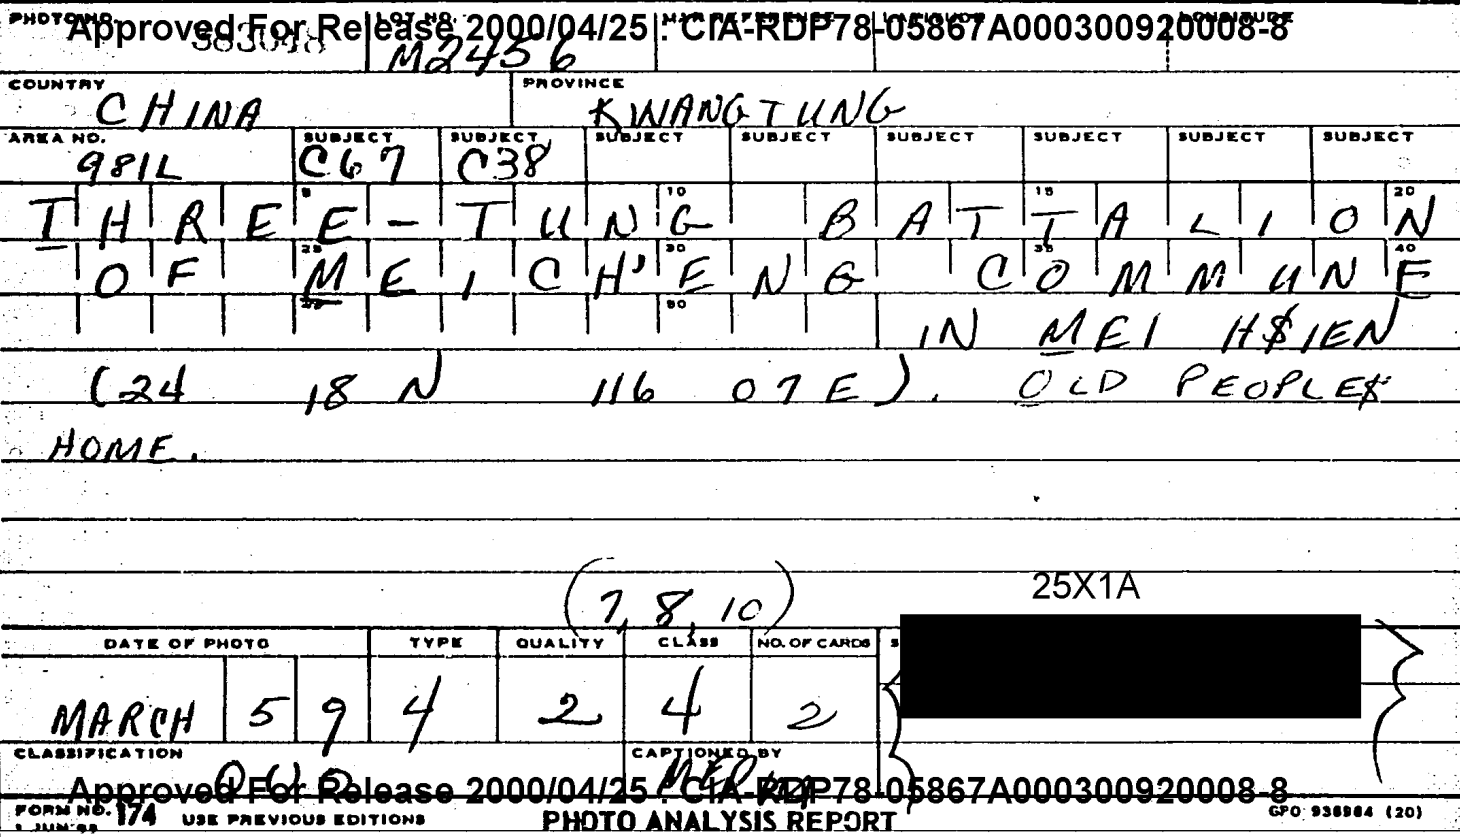 PHOTO NO. LOT NO. MAP REFERENCE LATITUDE LONGITUDE
Approved For Release 2000/04/25 : CIA-RDP78-05867A000300920008-8
M2456
COUNTRY PROVINCE
CHINA KWANGTUNG
AREA NO. SUBJECT SUBJECT SUBJECT SUBJECT SUBJECT SUBJECT SUBJECT SUBJECT
981L C67 C38
5 10 15 20
THREE-TUNG BATTALION
25 30 35 40
OF MEICH'ENG COMMUNE
50
IN MEI H$IEN
(24 18 N 116 07 E). OLD PEOPLE$
HOME.
25X1A
(7, 8, 10)
DATE OF PHOTO TYPE QUALITY CLASS NO. OF CARDS S
MARCH 59 4 2 4 2
CLASSIFICATION CAPTIONED BY
Approved For Release 2000/04/25 : CIA-RDP78-05867A000300920008-8
FORM NO. 174 USE PREVIOUS EDITIONS PHOTO ANALYSIS REPORT GPO 936964 (20)
1 JUN